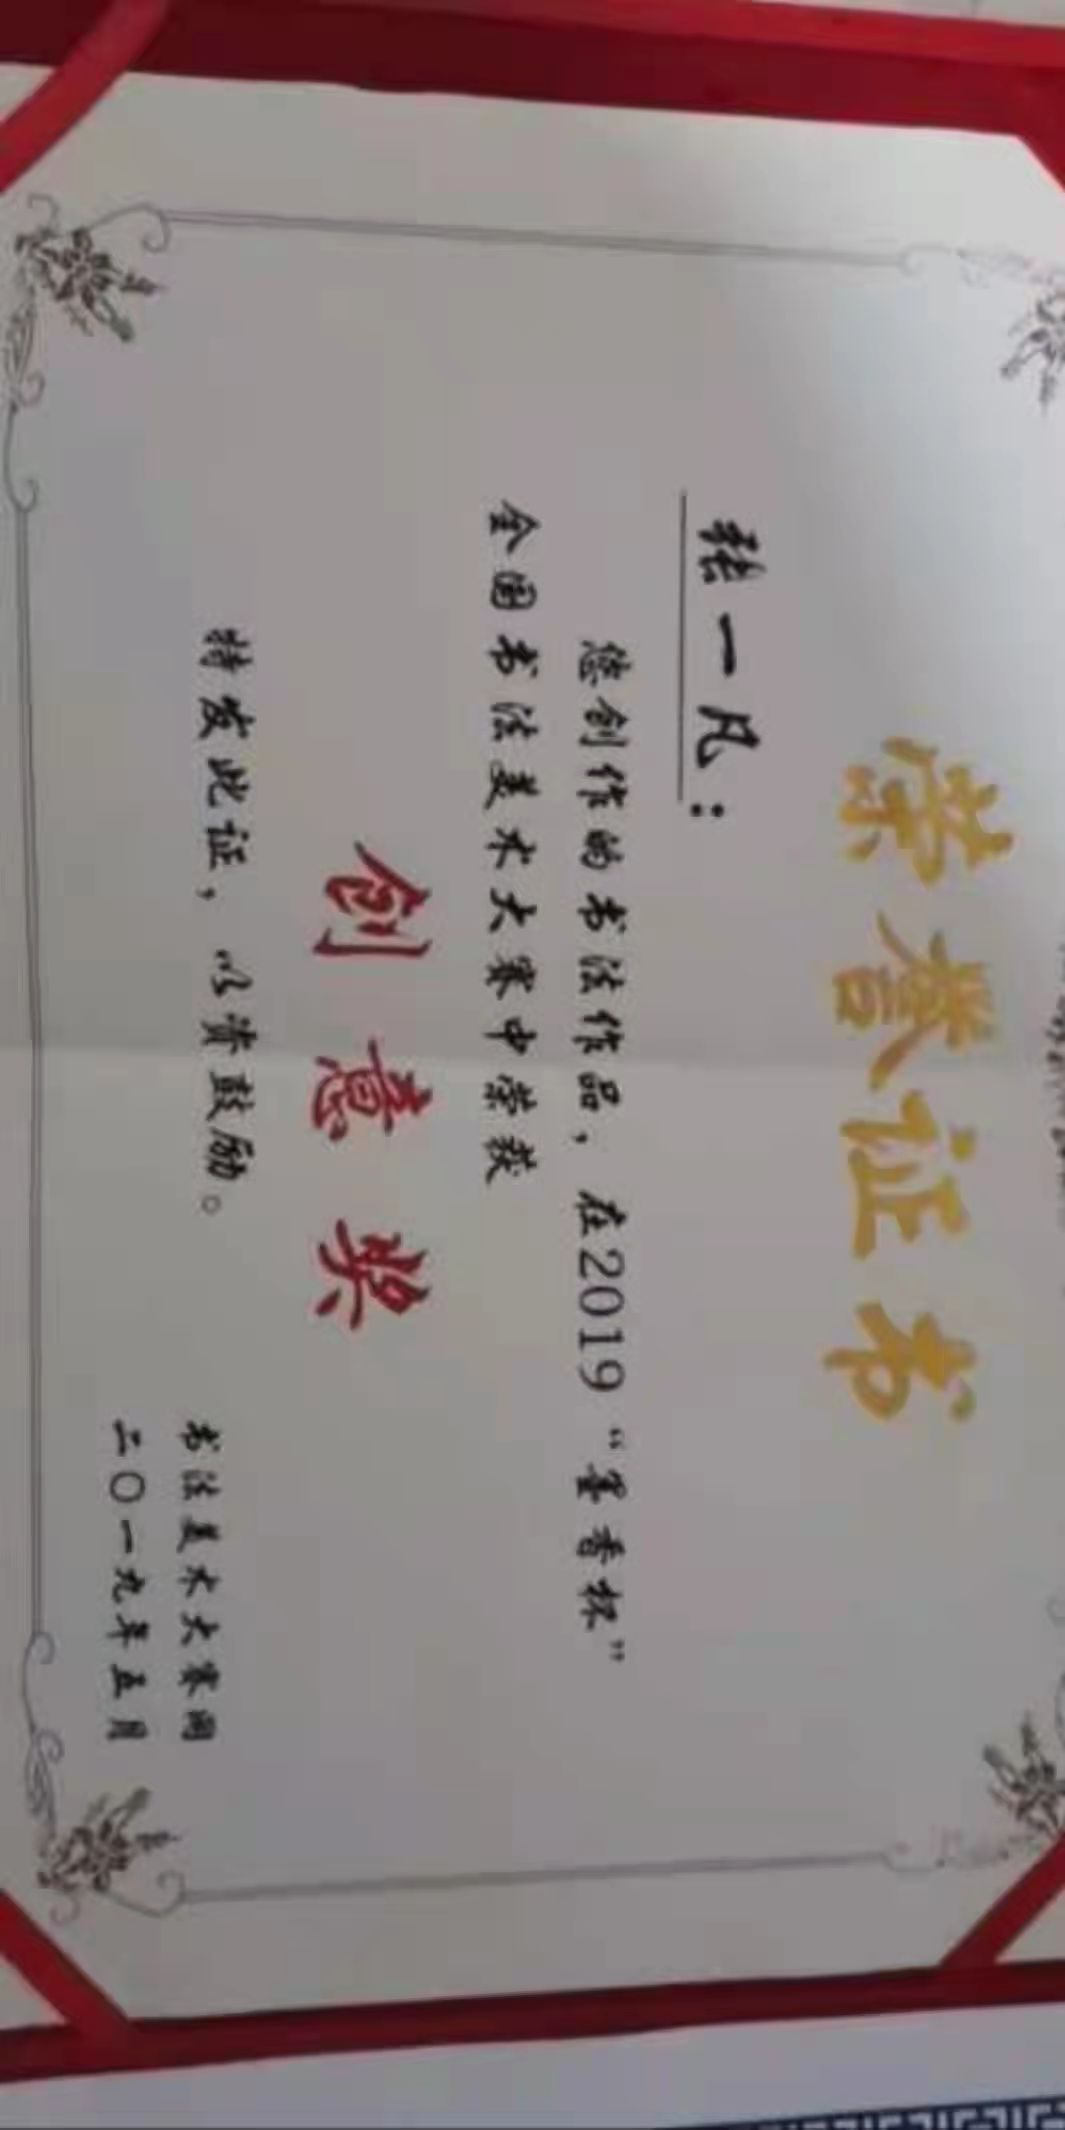 荣誉证书
张一凡：
您创作的书法作品，在2019“墨香杯”
全国书法美术大赛中荣获
创意奖
特发此证，以资鼓励。
书法美术大赛网
二〇一九年五月